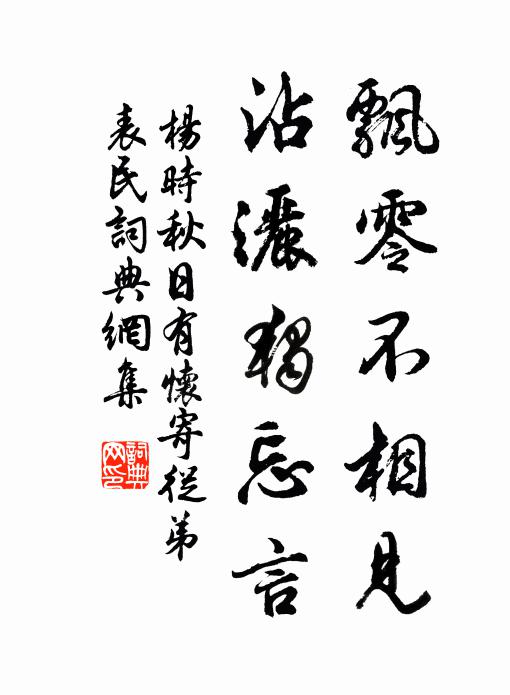 飄零不相見
沾灑獨忘言
楊時秋日有懷寄從弟
表民詞典網集
詞典網印